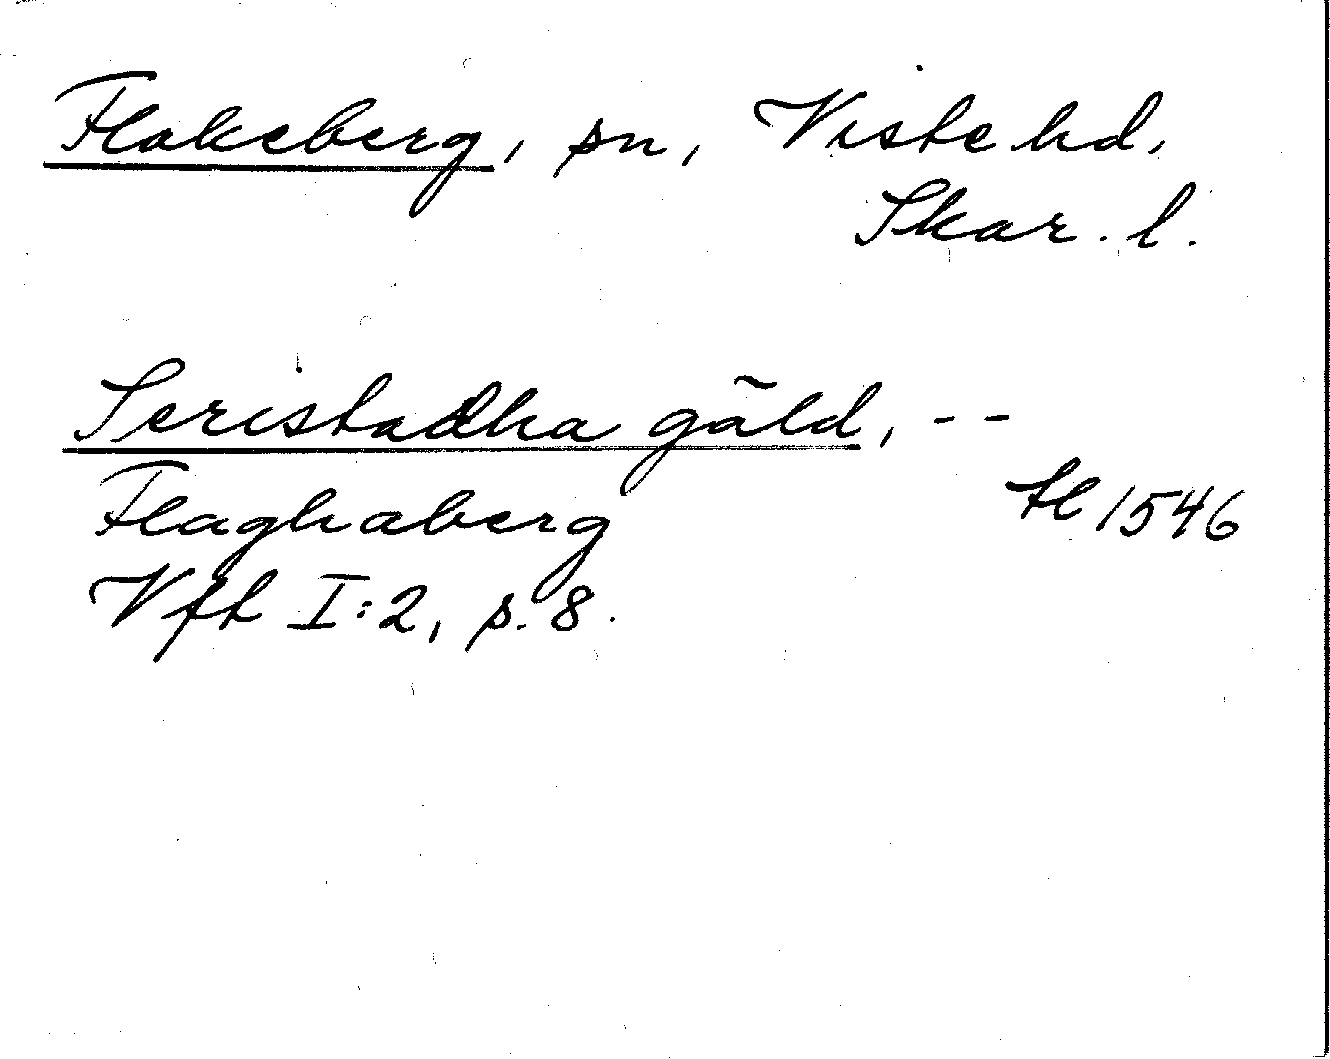 Flakeberg, sn, Viste hd,
Skar. l.
Seristadha gäld, --
Flaghaberg
tl 1546
Vfh I:2, s. 8.